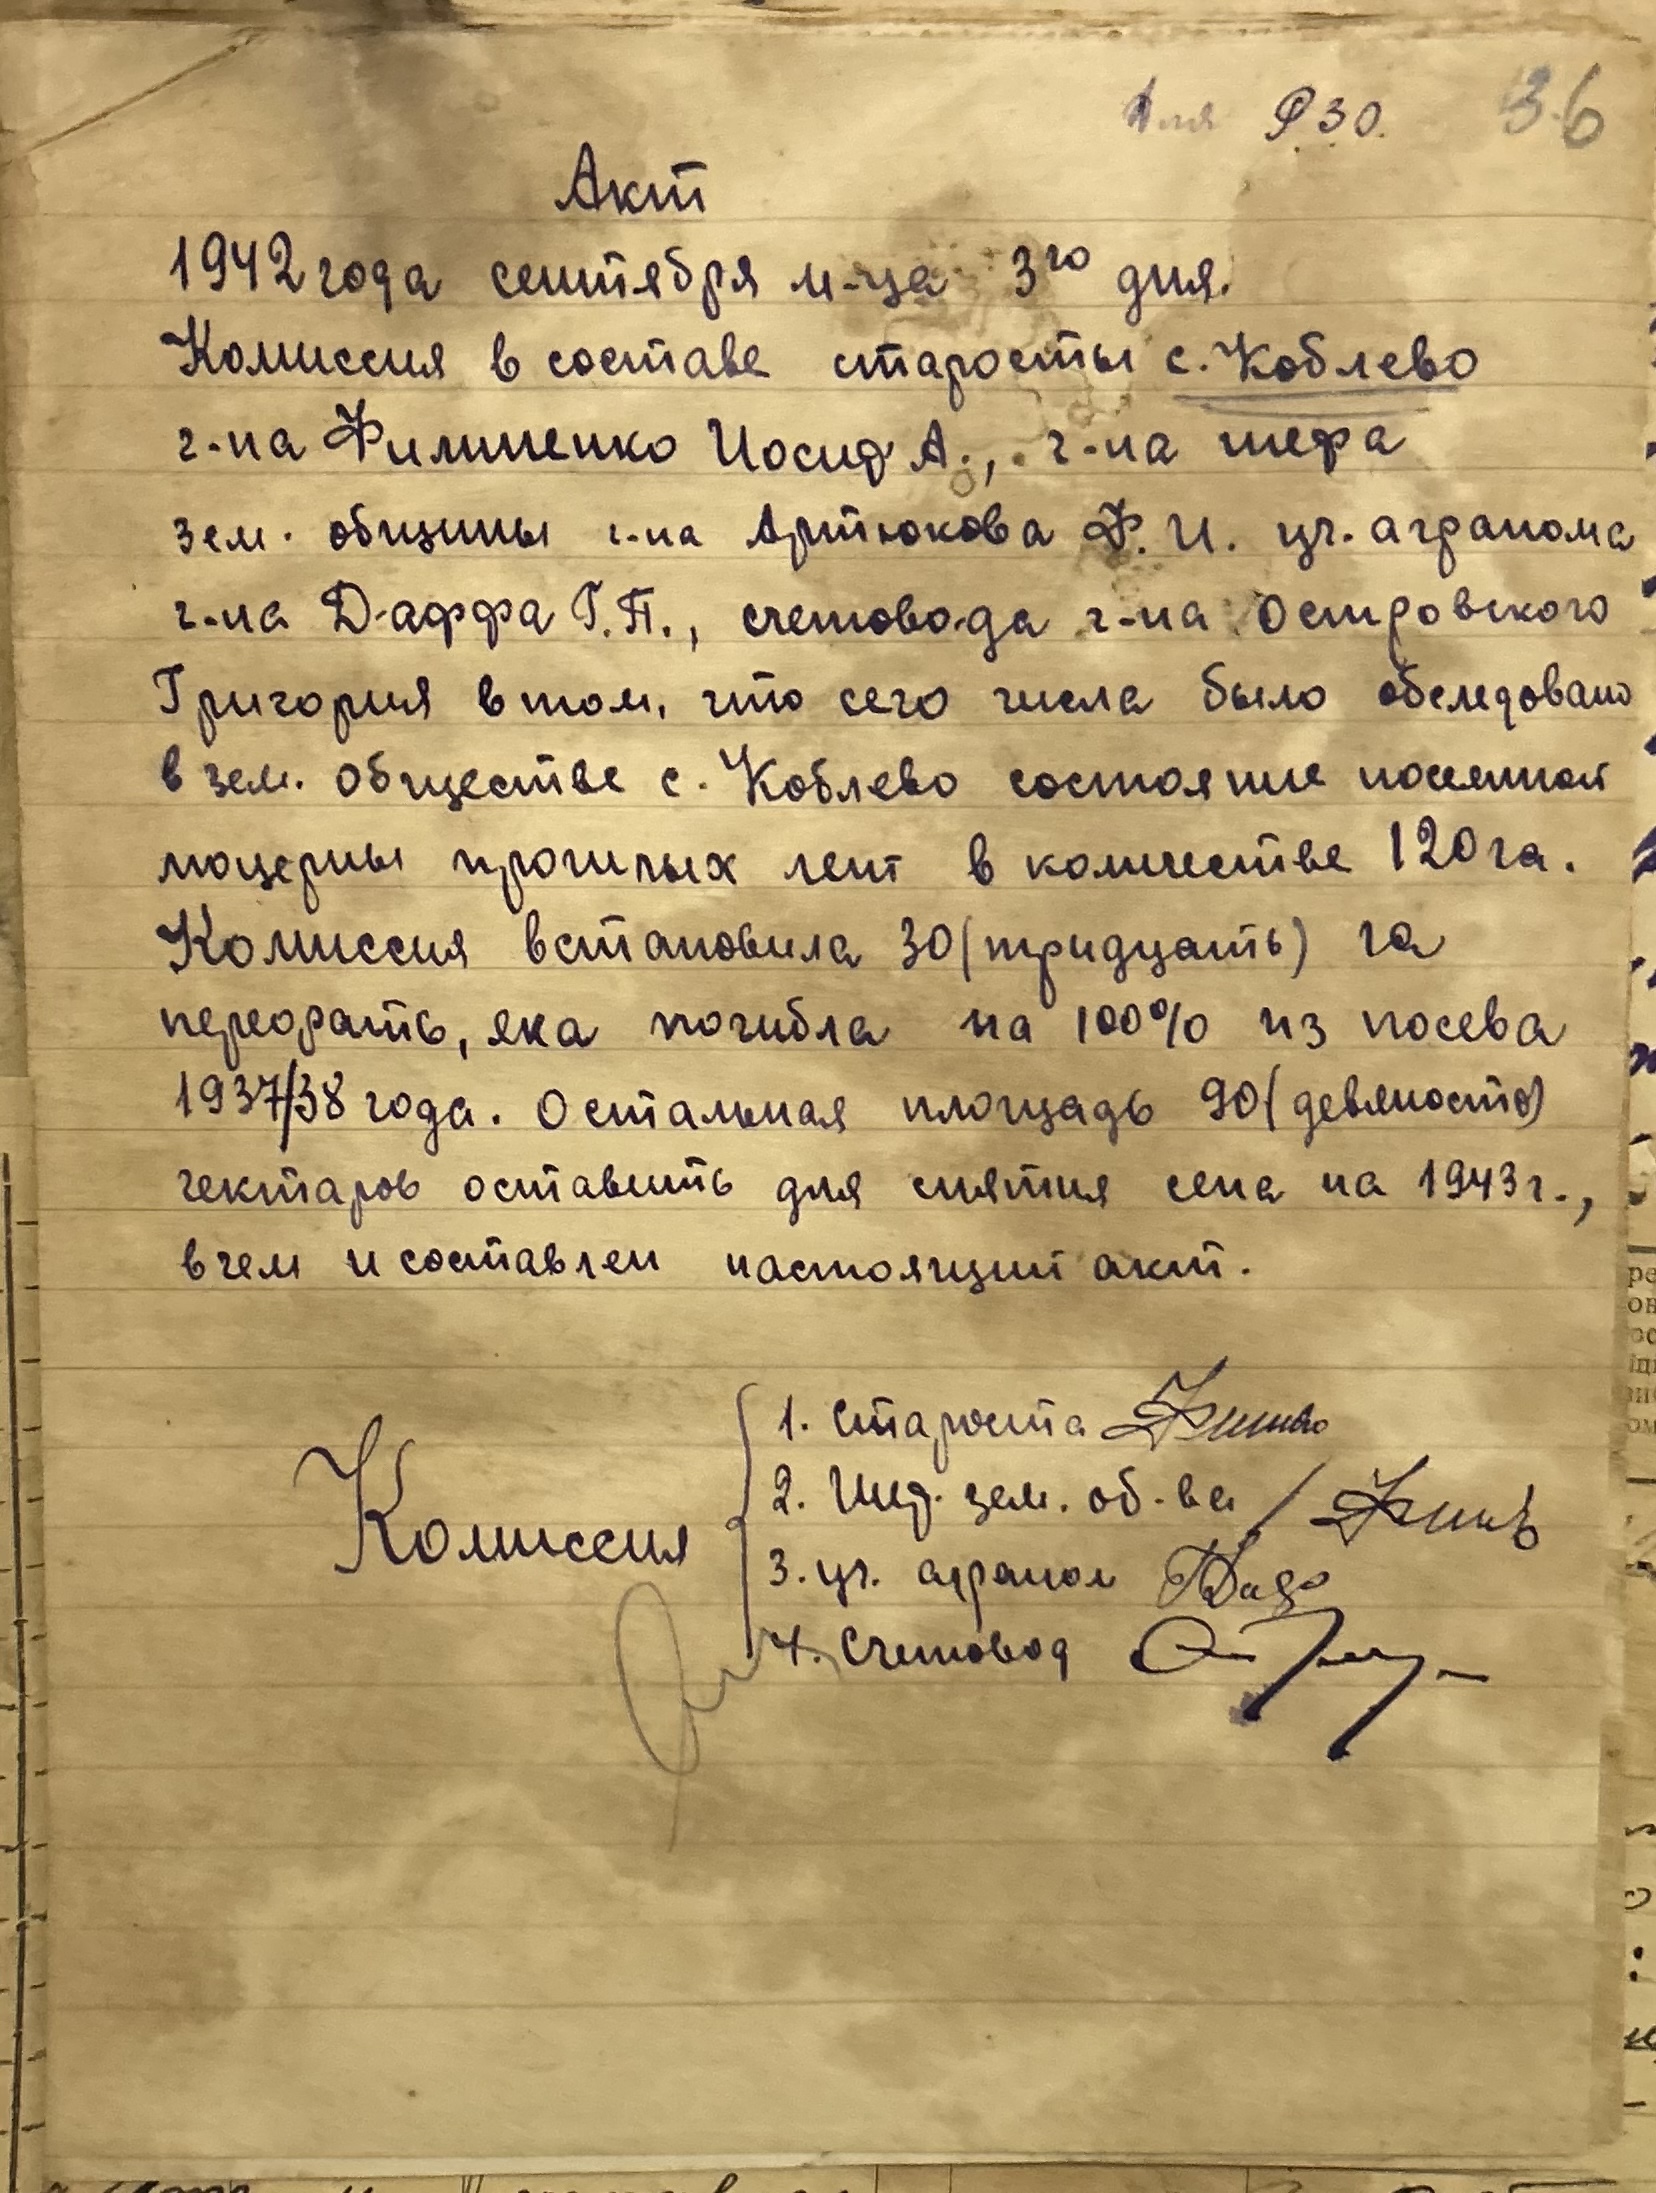 Для РЗО. 36
Акт
1942 года сентября м-ца 3го дня.
Комиссия в составе старосты с. Коблево
г-на Филипенко Иосиф А., г-на шефа
зем. общины г-на Артюкова Ф. И. уч. агранома
г-на Даффа Г.П., счетовода г-на Островского
Григория в том, что сего числа было обследовано
в зем. обществе с. Коблево состояние посеянной
люцерны прошлых лет в количестве 120 га.
Комиссия встановила 30 (тридцать) га
переорать, яка погибла на 100% из посева
1937/38 года. Остальная площадь 90 (девяносто)
гектаров оставить для снятия сена на 1943 г.,
в чем и составлен настоящий акт.
Комиссия
1. Староста
2. Шеф. зем. об-ва
3. уч. аграном
4. Счетовод